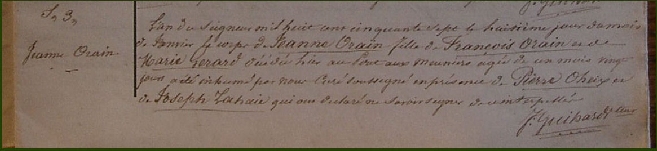 S. 3.
Jeanne Orain
L'an du Seigneur mil huit cent cinquante sept le huitième jour du mois
de Janvier le corps de Jeanne Orain fille de François Orain et de
Marie Gerard décédée hier au Pont aux Meuniers agée de un mois neuf
jours a été inhumé par nous Curé soussigné en présence de Pierre Oheix et
de Joseph Lahaie qui ont declaré ne savoir signer de ce interpellés
J. Guihard